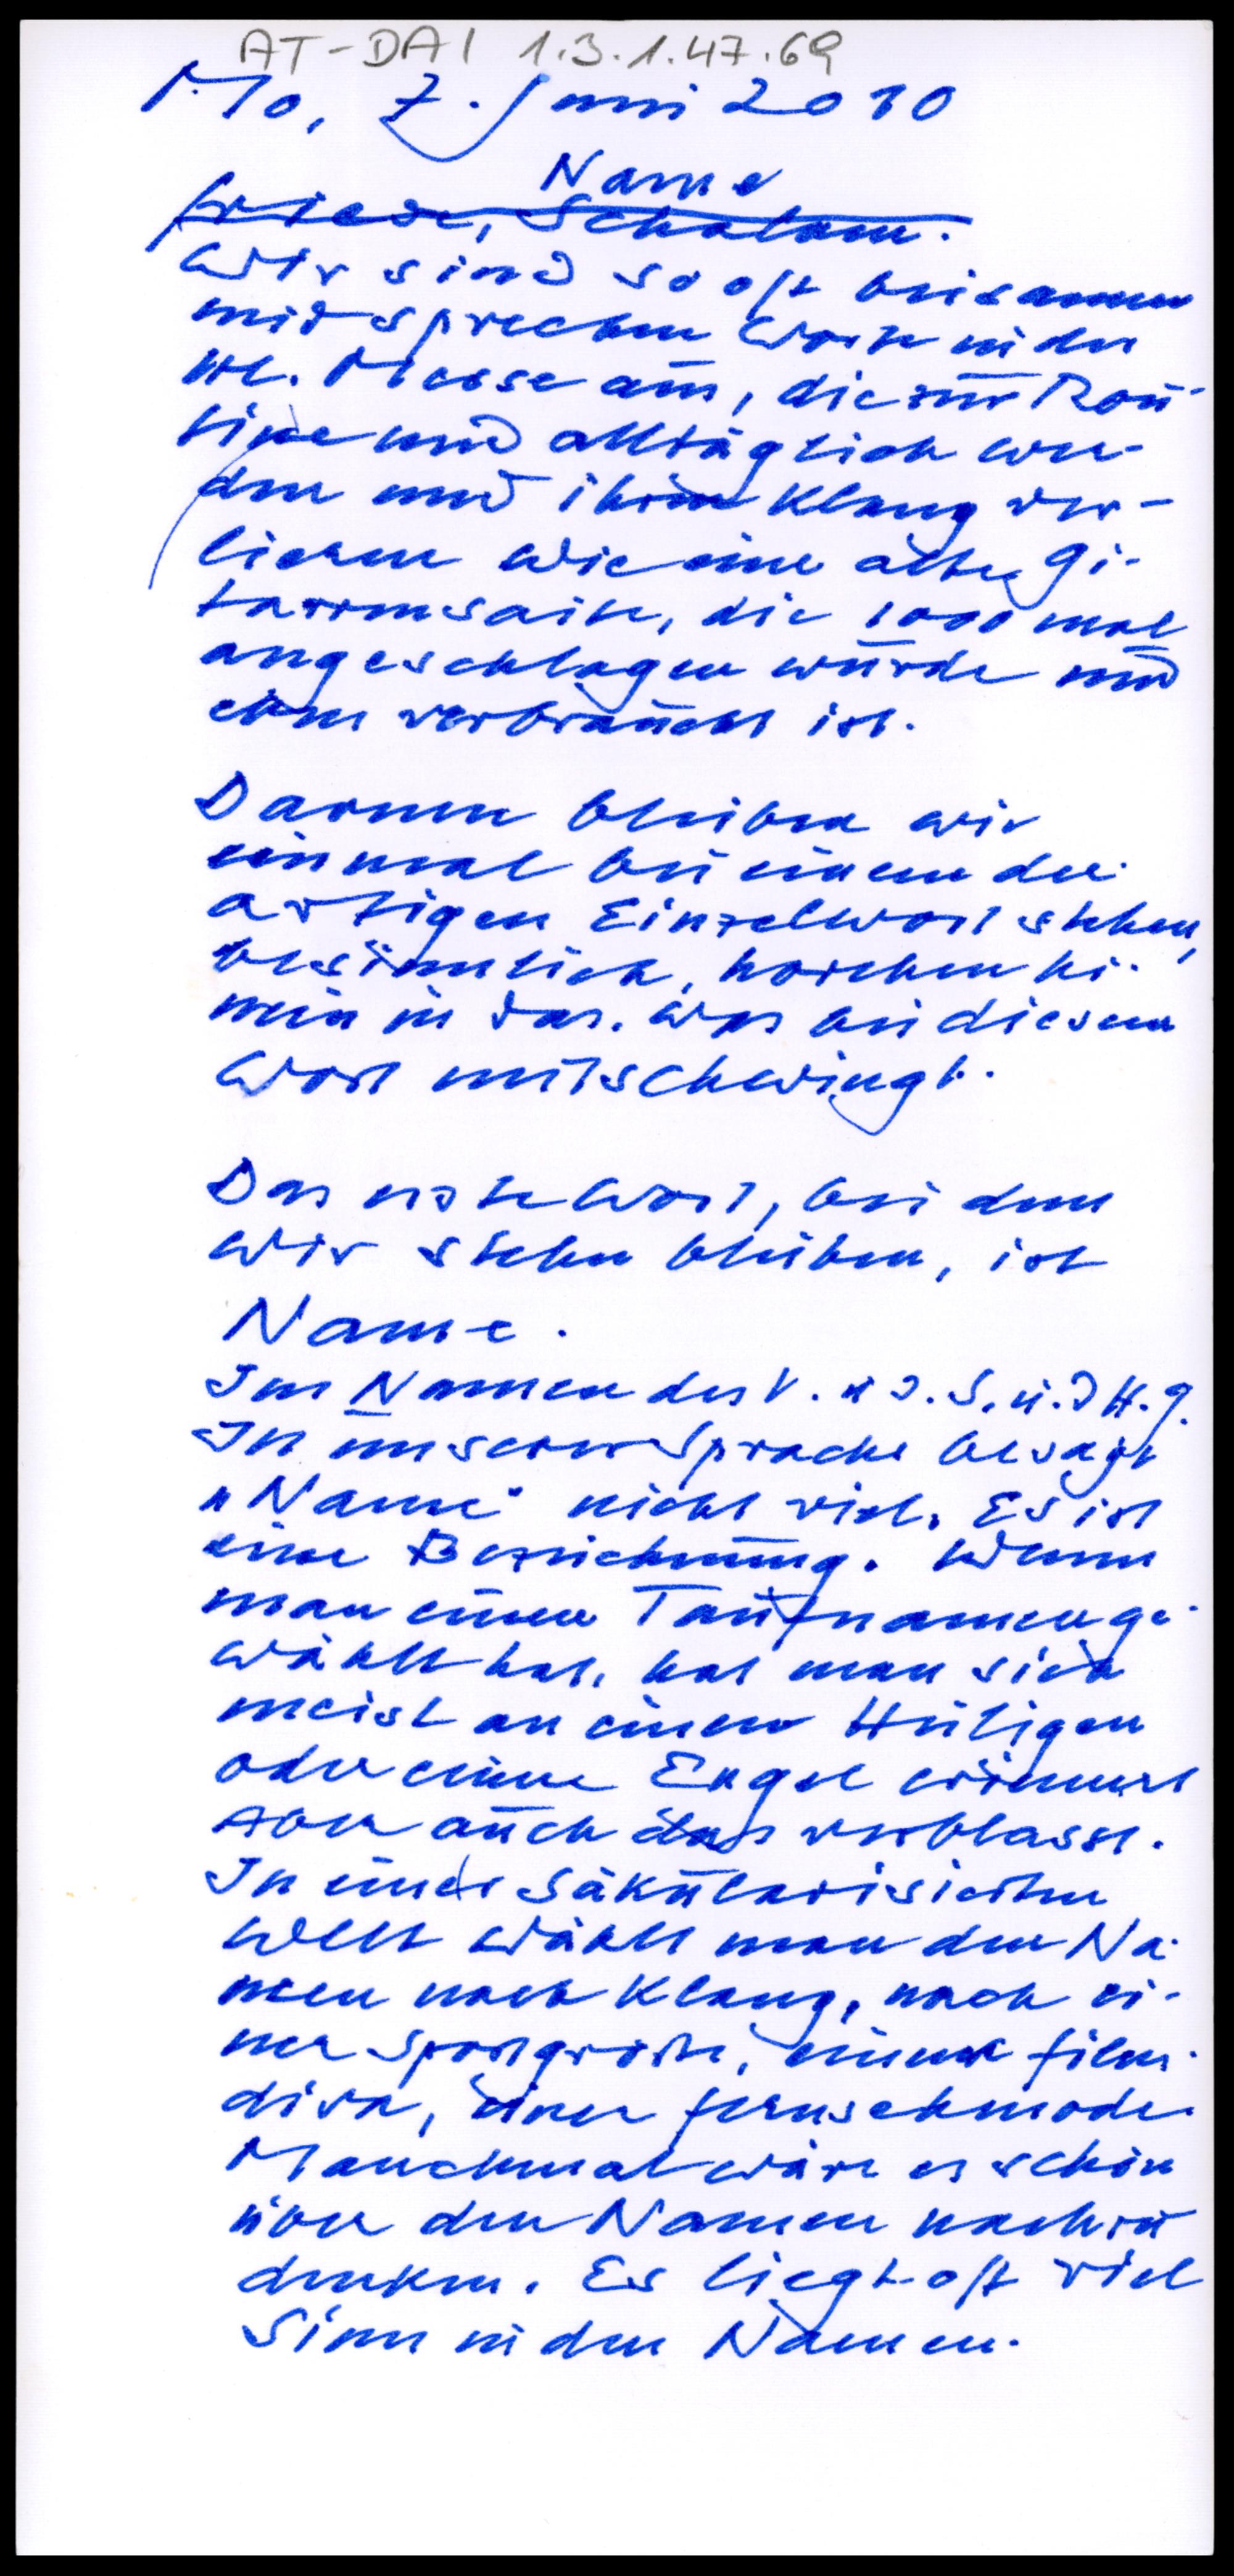 AT-DAI 1.3.1.47.69
Mo, 7. Juni 2010
Name
Friede, Schalom.
Wir sind so oft beisammen
und sprechen Worte in der
Hl. Messe aus, die zur Rou-
tine und alltäglich wer-
den und ihren Klang ver-
lieren wie eine alte Gi-
tarrensaite, die 1000 mal
angeschlagen wurde und
eben verbraucht ist.
Darum bleiben wir
einmal bei einem der-
artigen Einzelwort stehen,
besinnlich, horchen hi-
nein in das. Was bei diesem
Wort mitschwingt.
Das erste Wort, bei dem
wir stehn bleiben, ist
Name.
Im Namen des V. u d. S. u. d H. G.
In unserer Sprache besagt
"Name" nicht viel. Es ist
eine Bezeichnung. Wenn
man einen Taufnamen ge-
wählt hat, hat man sich
meist an einen Heiligen
oder einen Engel erinnert
Aber auch das verblasst.
In einer säkularisierten
Welt wählt man den Na-
men nach Klang, nach ei-
ner Sportgröße, einer Film-
diva, einer Fernsehmode.
Manchmal wäre es schön
über den Namen nachzu
denken. Es liegt oft viel
Sinn in den Namen.